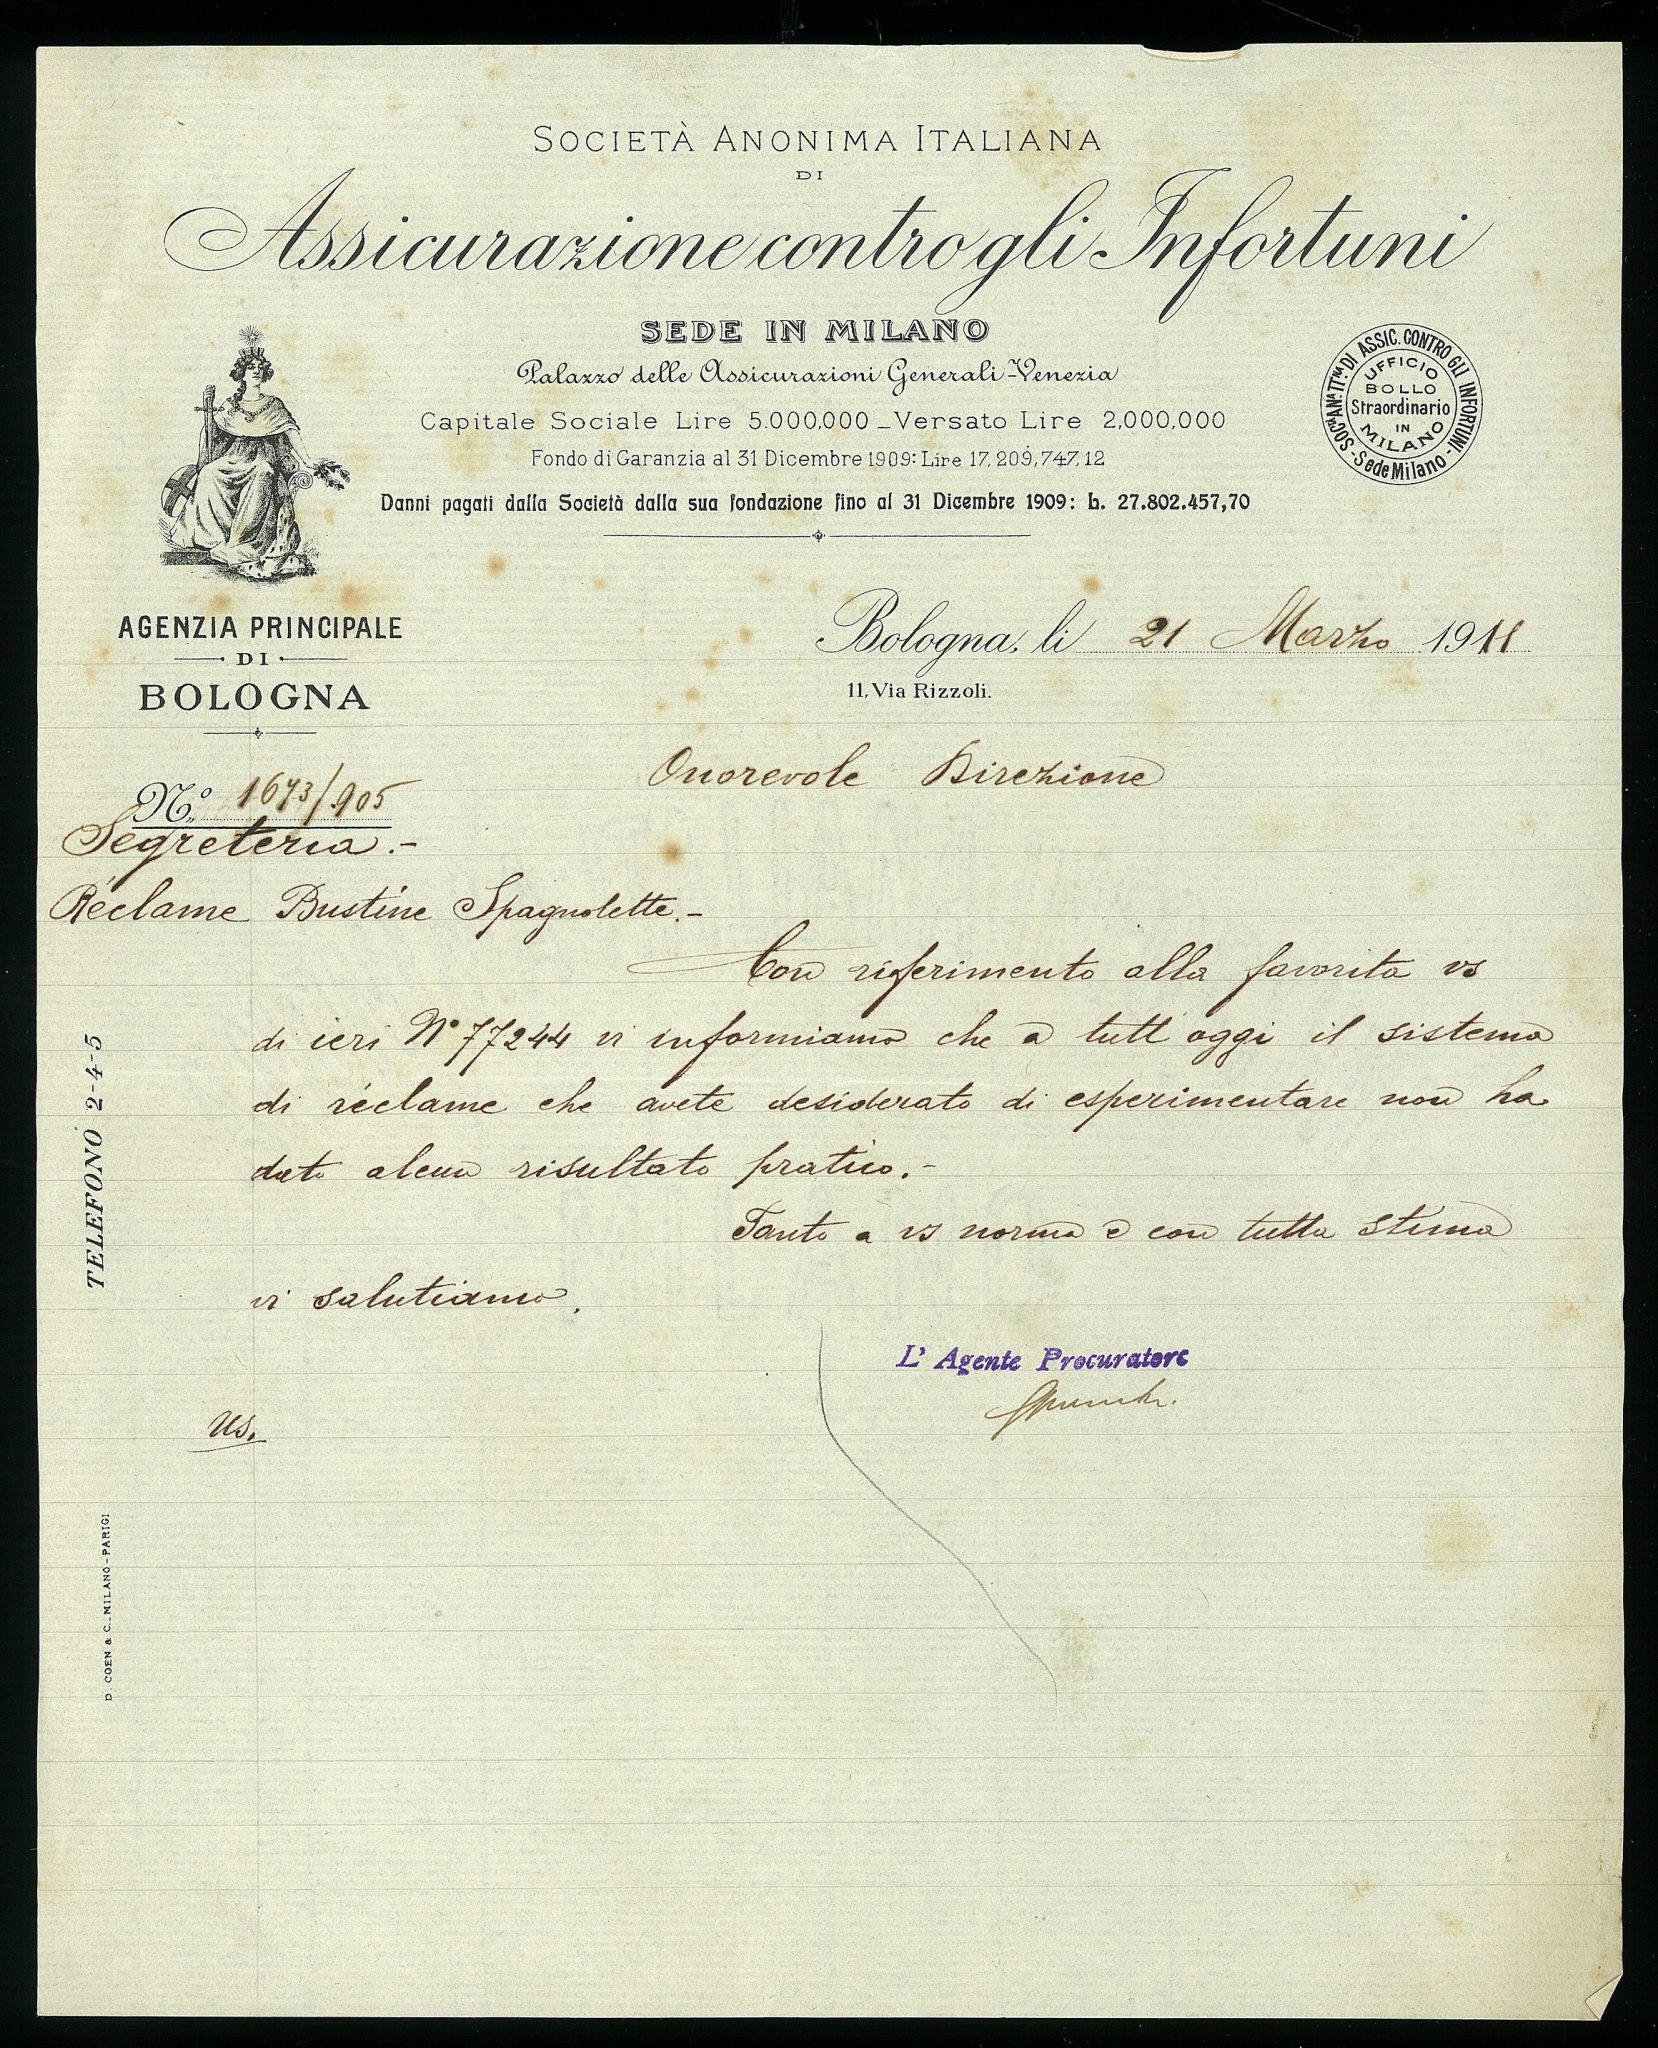 SOCIETÀ ANONIMA ITALIANA
DI
Assicurazione contro gli Infortuni
SEDE IN MILANO
Palazzo delle Assicurazioni Generali-Venezia
Capitale Sociale Lire 5.000,000 - Versato Lire 2,000,000
Fondo di Garanzia al 31 Dicembre 1909: Lire 17,209,747,12
Danni pagati dalla Società dalla sua fondazione fino al 31 Dicembre 1909: L. 27.802.457,70
SOC.tà AN.A IT.NA DI ASSIC. CONTRO GLI INFORTUNI - Sede Milano -
UFFICIO
BOLLO
Straordinario
IN
MILANO
AGENZIA PRINCIPALE
DI
BOLOGNA
Bologna, li 21 Marzo 1911
11, Via Rizzoli.
Onorevole Direzione
N.º 1673/905
Segreteria.-
Réclame Bustine Spagnolette.-
Con riferimento alla favorita vs
di ieri Nº 77244 vi informiamo che a tutt'oggi il sistema
di réclame che avete desiderato di esperimentare non ha
dato alcun risultato pratico.-
Tanto a vs norma e con tutta stima
vi salutiamo.
L' Agente Procuratore
us.
TELEFONO 2-4-5
D. COEN & C. MILANO - PARIGI